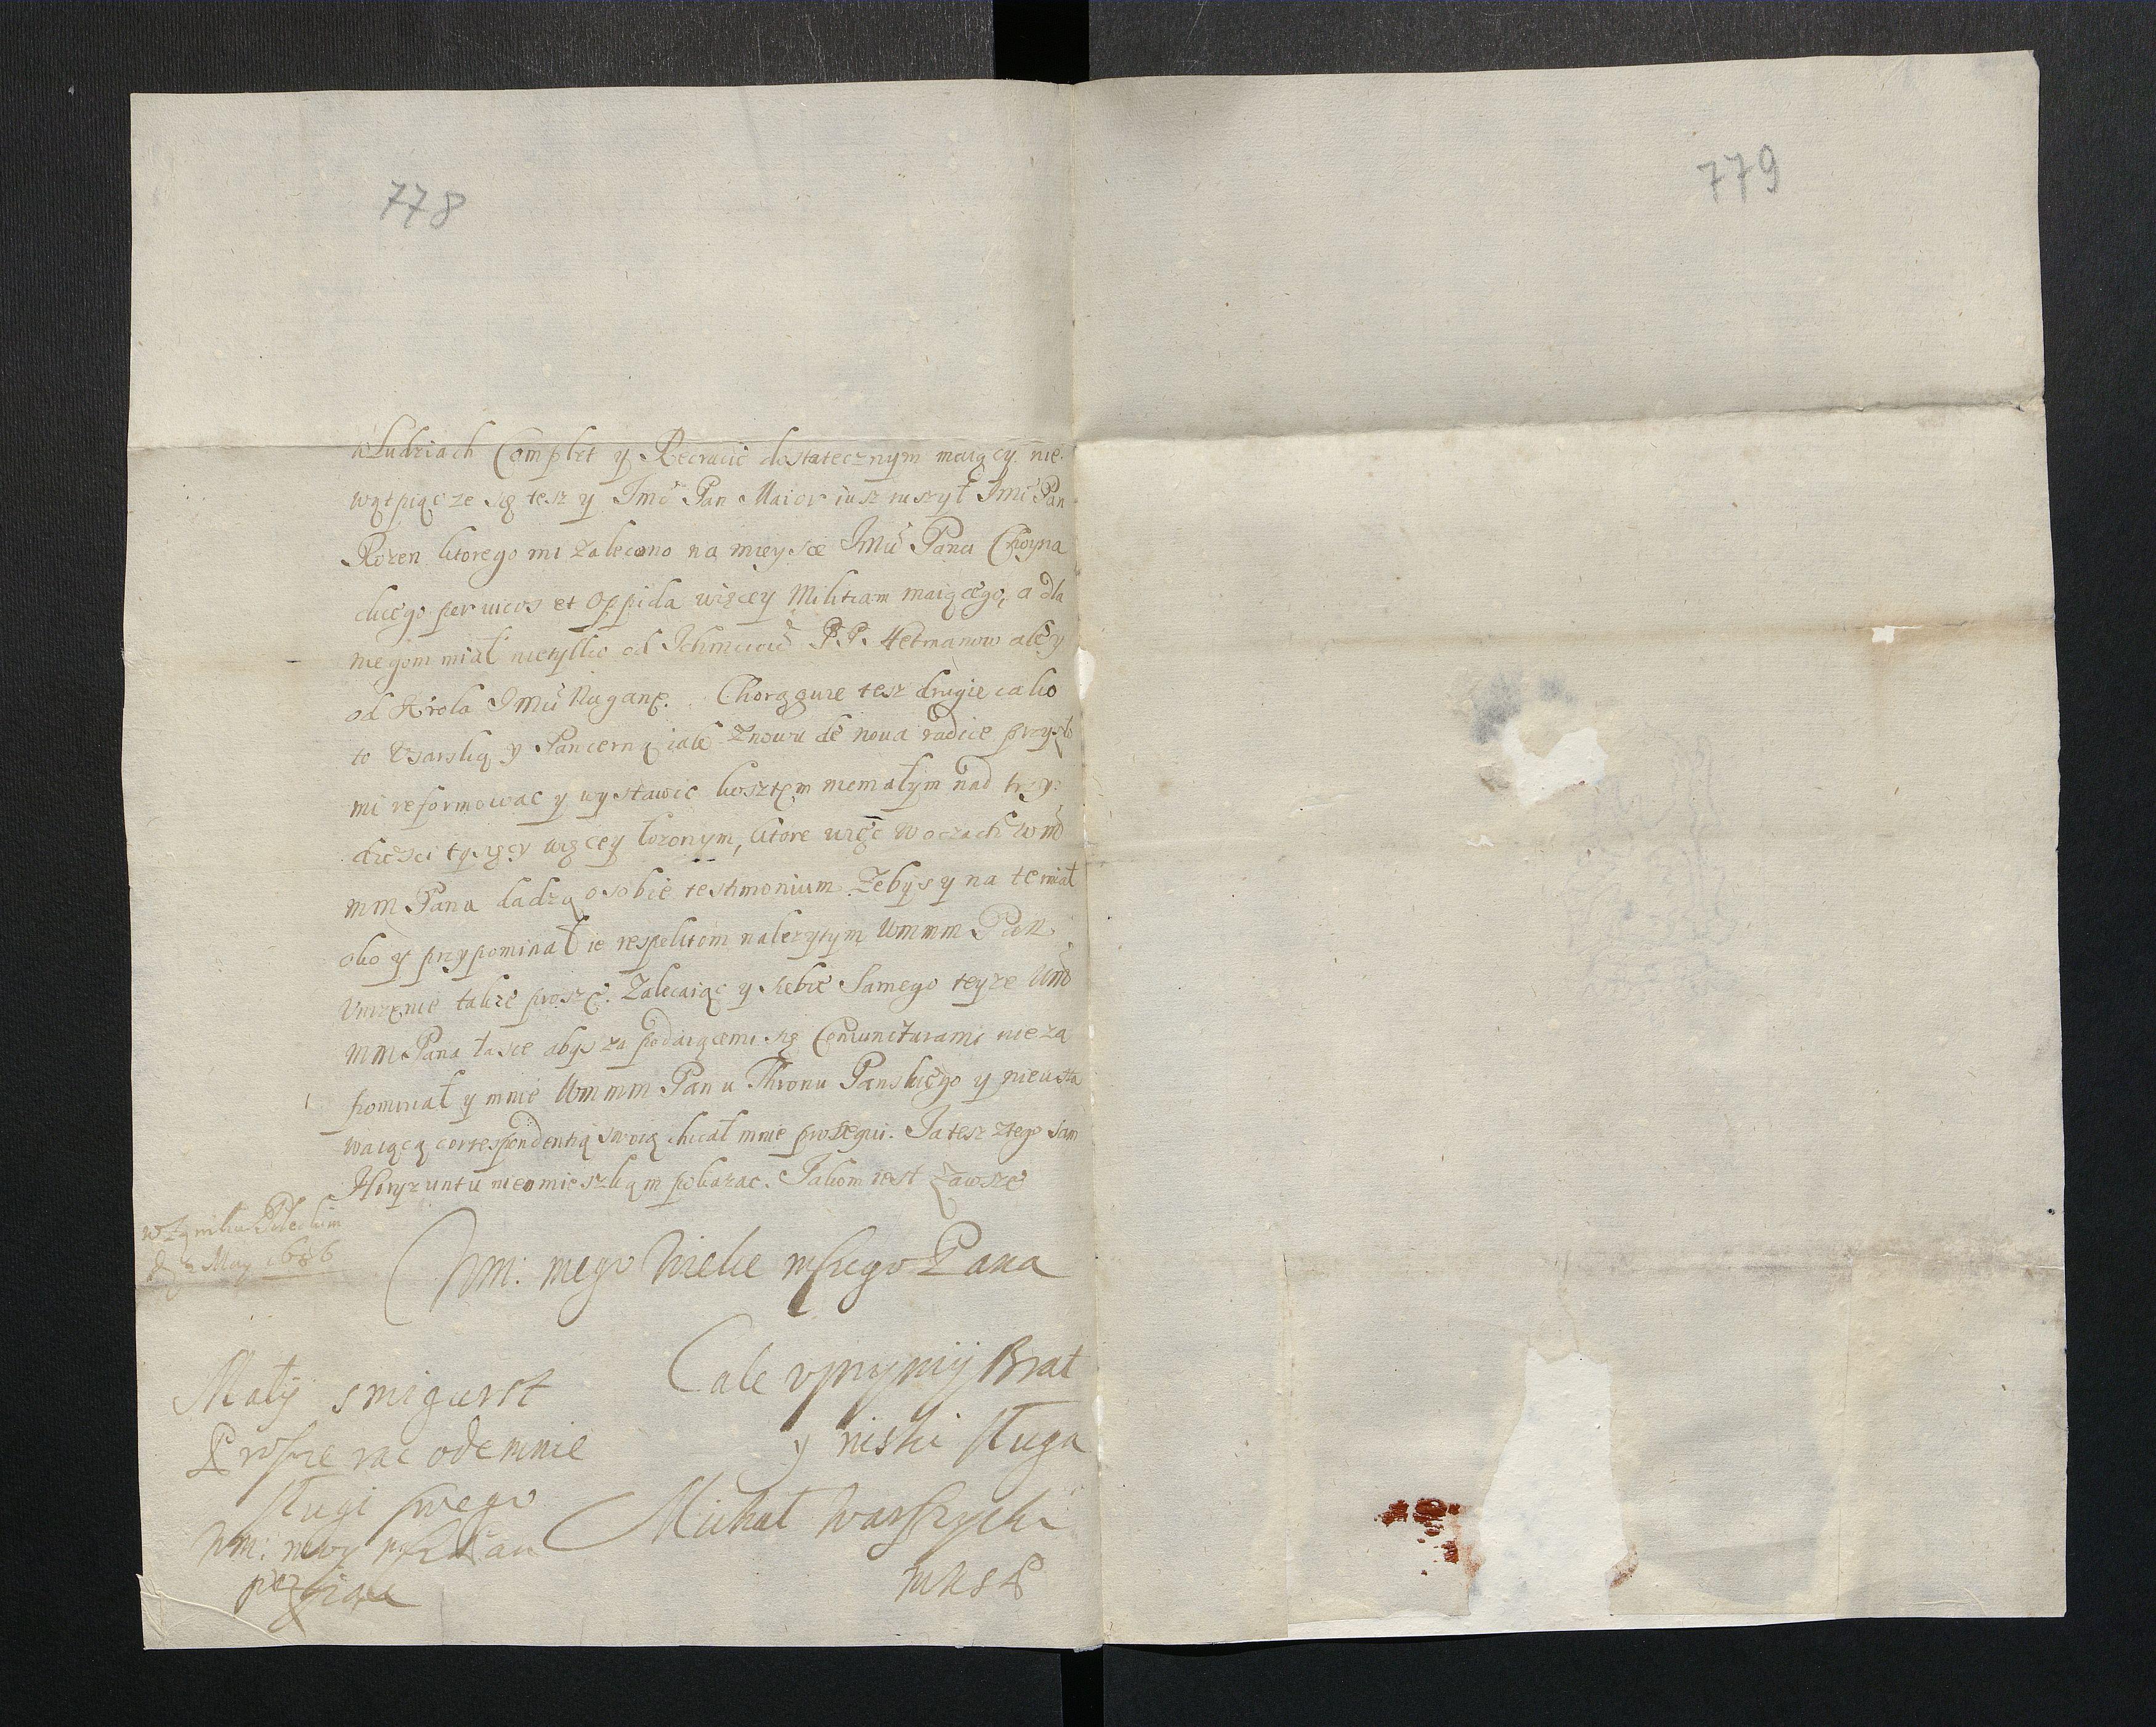 778
w Ludziach Complet y Recrucie dostatecznym maiący. nie
wątpiąc ze się tesz y Jmć Pan Maior iusz ruszył Jmć Pan
Rozen ktorego mi zalecono na mieysce Jmći Pana
per vicos et Oppida więcey Militiam maiącego, a dla
niegom miał nietylko od Ichmciow P.P. Hetmanow ale y
od Krola Jmći Naganę. Chorągwie tesz drugie iako
to Vsarską y Pancerną iako znowu de nova radice przyszło
mi reformować y wystawić kosztem niemałym nad trzy
dziesci tysięcy więcey łozonym, ktore więc w oczach Wmć
mm Pana dadzą o sobie testimonium. Zebys y na te miał
oko y przypominał ie respektom nalezytym Wmmm Pan
Vnizenie takze proszę. Zalecaiąc y siebie samego teyze Wmć
mm Pana łasce abys za podaiącemi się Coniuncturami nieza
pominał y mnie Wmmm Pan u Thronu Panskiego y nieusta
waiącą correspondentią swoią chciał mnie prosequi. Ja tesz z tego sam
Horyzuntu nieomieszkąm pokazac. Jakom iest zawsze
May 1686
Wm: mego Wielce mśćiego Pana
Cale vprzymij Brat
y niski sługa
Michał Warszycki
Małÿ smigurst
Proszę rac odemnie
sługi swego
Wm: moy
779